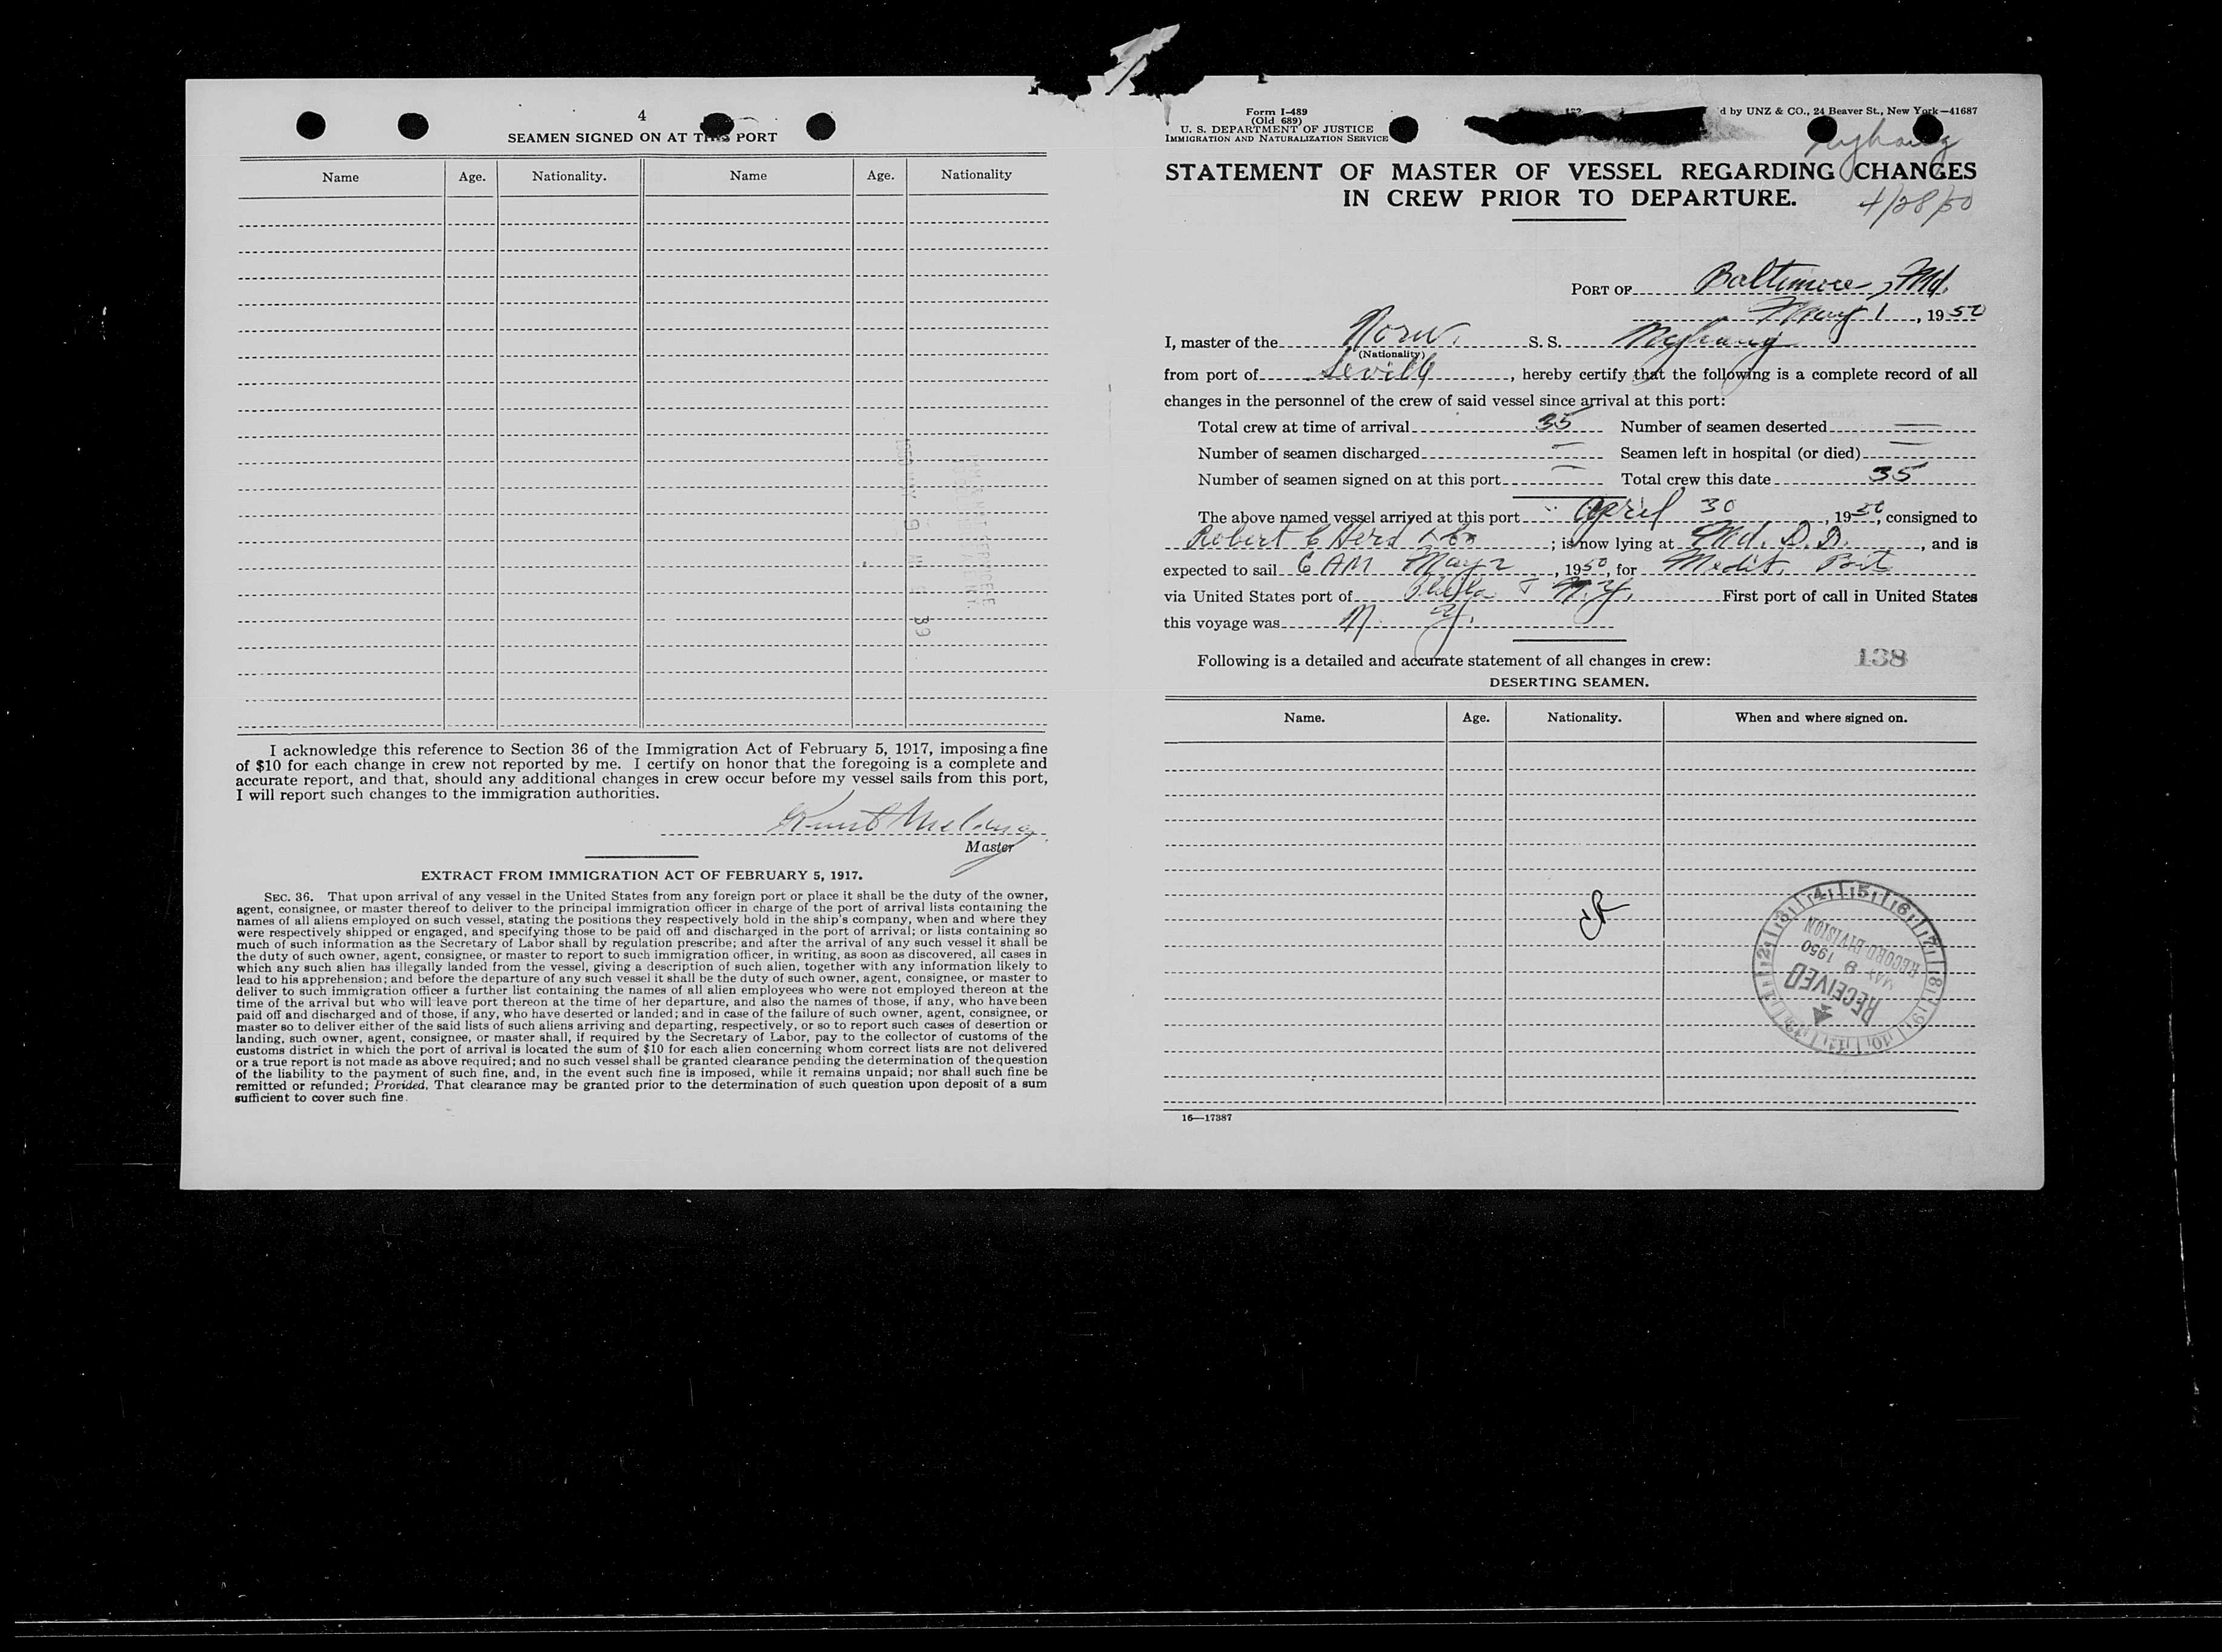 4
SEAMEN SIGNED ON AT THIS PORT
Name Age. Nationality. Name Age. Nationality
I acknowledge this reference to Section 36 of the Immigration Act of February 5, 1917, imposing a fine
of $10 for each change in crew not reported by me. I certify on honor that the foregoing is a complete and
accurate report, and that, should any additional changes in crew occur before my vessel sails from this port,
I will report such changes to the immigration authorities.
Master
EXTRACT FROM IMMIGRATION ACT OF FEBRUARY 5, 1917.
SEC. 36. That upon arrival of any vessel in the United States from any foreign port or place it shall be the duty of the owner,
agent, consignee, or master thereof to deliver to the principal immigration officer in charge of the port of arrival lists containing the
names of all aliens employed on such vessel, stating the positions they respectively hold in the ship's company, when and where they
were respectively shipped or engaged, and specifying those to be paid off and discharged in the port of arrival; or lists containing so
much of such information as the Secretary of Labor shall by regulation prescribe; and after the arrival of any such vessel it shall be
the duty of such owner, agent, consignee, or master to report to such immigration officer, in writing, as soon as discovered, all cases in
which any such alien has illegally landed from the vessel, giving a description of such alien, together with any information likely to
lead to his apprehension; and before the departure of any such vessel it shall be the duty of such owner, agent, consignee, or master to
deliver to such immigration officer a further list containing the names of all alien employees who were not employed thereon at the
time of the arrival but who will leave port thereon at the time of her departure, and also the names of those, if any, who have been
paid off and discharged and of those, if any, who have deserted or landed; and in case of the failure of such owner, agent, consignee, or
master so to deliver either of the said lists of such aliens arriving and departing, respectively, or so to report such cases of desertion or
landing, such owner, agent, consignee, or master shall, if required by the Secretary of Labor, pay to the collector of customs of the
customs district in which the port of arrival is located the sum of $10 for each alien concerning whom correct lists are not delivered
or a true report is not made as above required; and no such vessel shall be granted clearance pending the determination of the question
of the liability to the payment of such fine, and, in the event such fine is imposed, while it remains unpaid; nor shall such fine be
remitted or refunded; Provided, That clearance may be granted prior to the determination of such question upon deposit of a sum
sufficient to cover such fine.
Form I-489
(Old 689)
U. S. DEPARTMENT OF JUSTICE
IMMIGRATION AND NATURALIZATION SERVICE
d by UNZ & CO., 24 Beaver St., New York—41687
STATEMENT OF MASTER OF VESSEL REGARDING CHANGES
IN CREW PRIOR TO DEPARTURE.
4/28/50
PORT OF Baltimore, Md.
May 1, 1950
I, master of the Norw. S. S. Nyhaug
(Nationality)
from port of Seville, hereby certify that the following is a complete record of all
changes in the personnel of the crew of said vessel since arrival at this port:
Total crew at time of arrival 35 Number of seamen deserted —
Number of seamen discharged — Seamen left in hospital (or died) —
Number of seamen signed on at this port — Total crew this date 35
The above named vessel arrived at this port April 30, 1950, consigned to
Robert C Herd & Co; is now lying at Md. D. D., and is
expected to sail 6 AM May 2, 1950, for Medit. Port
via United States port of Phila & N.Y. First port of call in United States
this voyage was N. Y.
Following is a detailed and accurate statement of all changes in crew:
138
DESERTING SEAMEN.
Name. Age. Nationality. When and where signed on.
RECEIVED
MAY 9 1950
RECORD DIVISION
16—17387